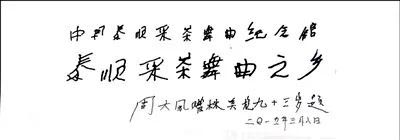 中国泰顺采茶舞曲纪念馆
泰顺采茶舞曲之乡
周大风 九十三岁题
二〇一九年三月八日